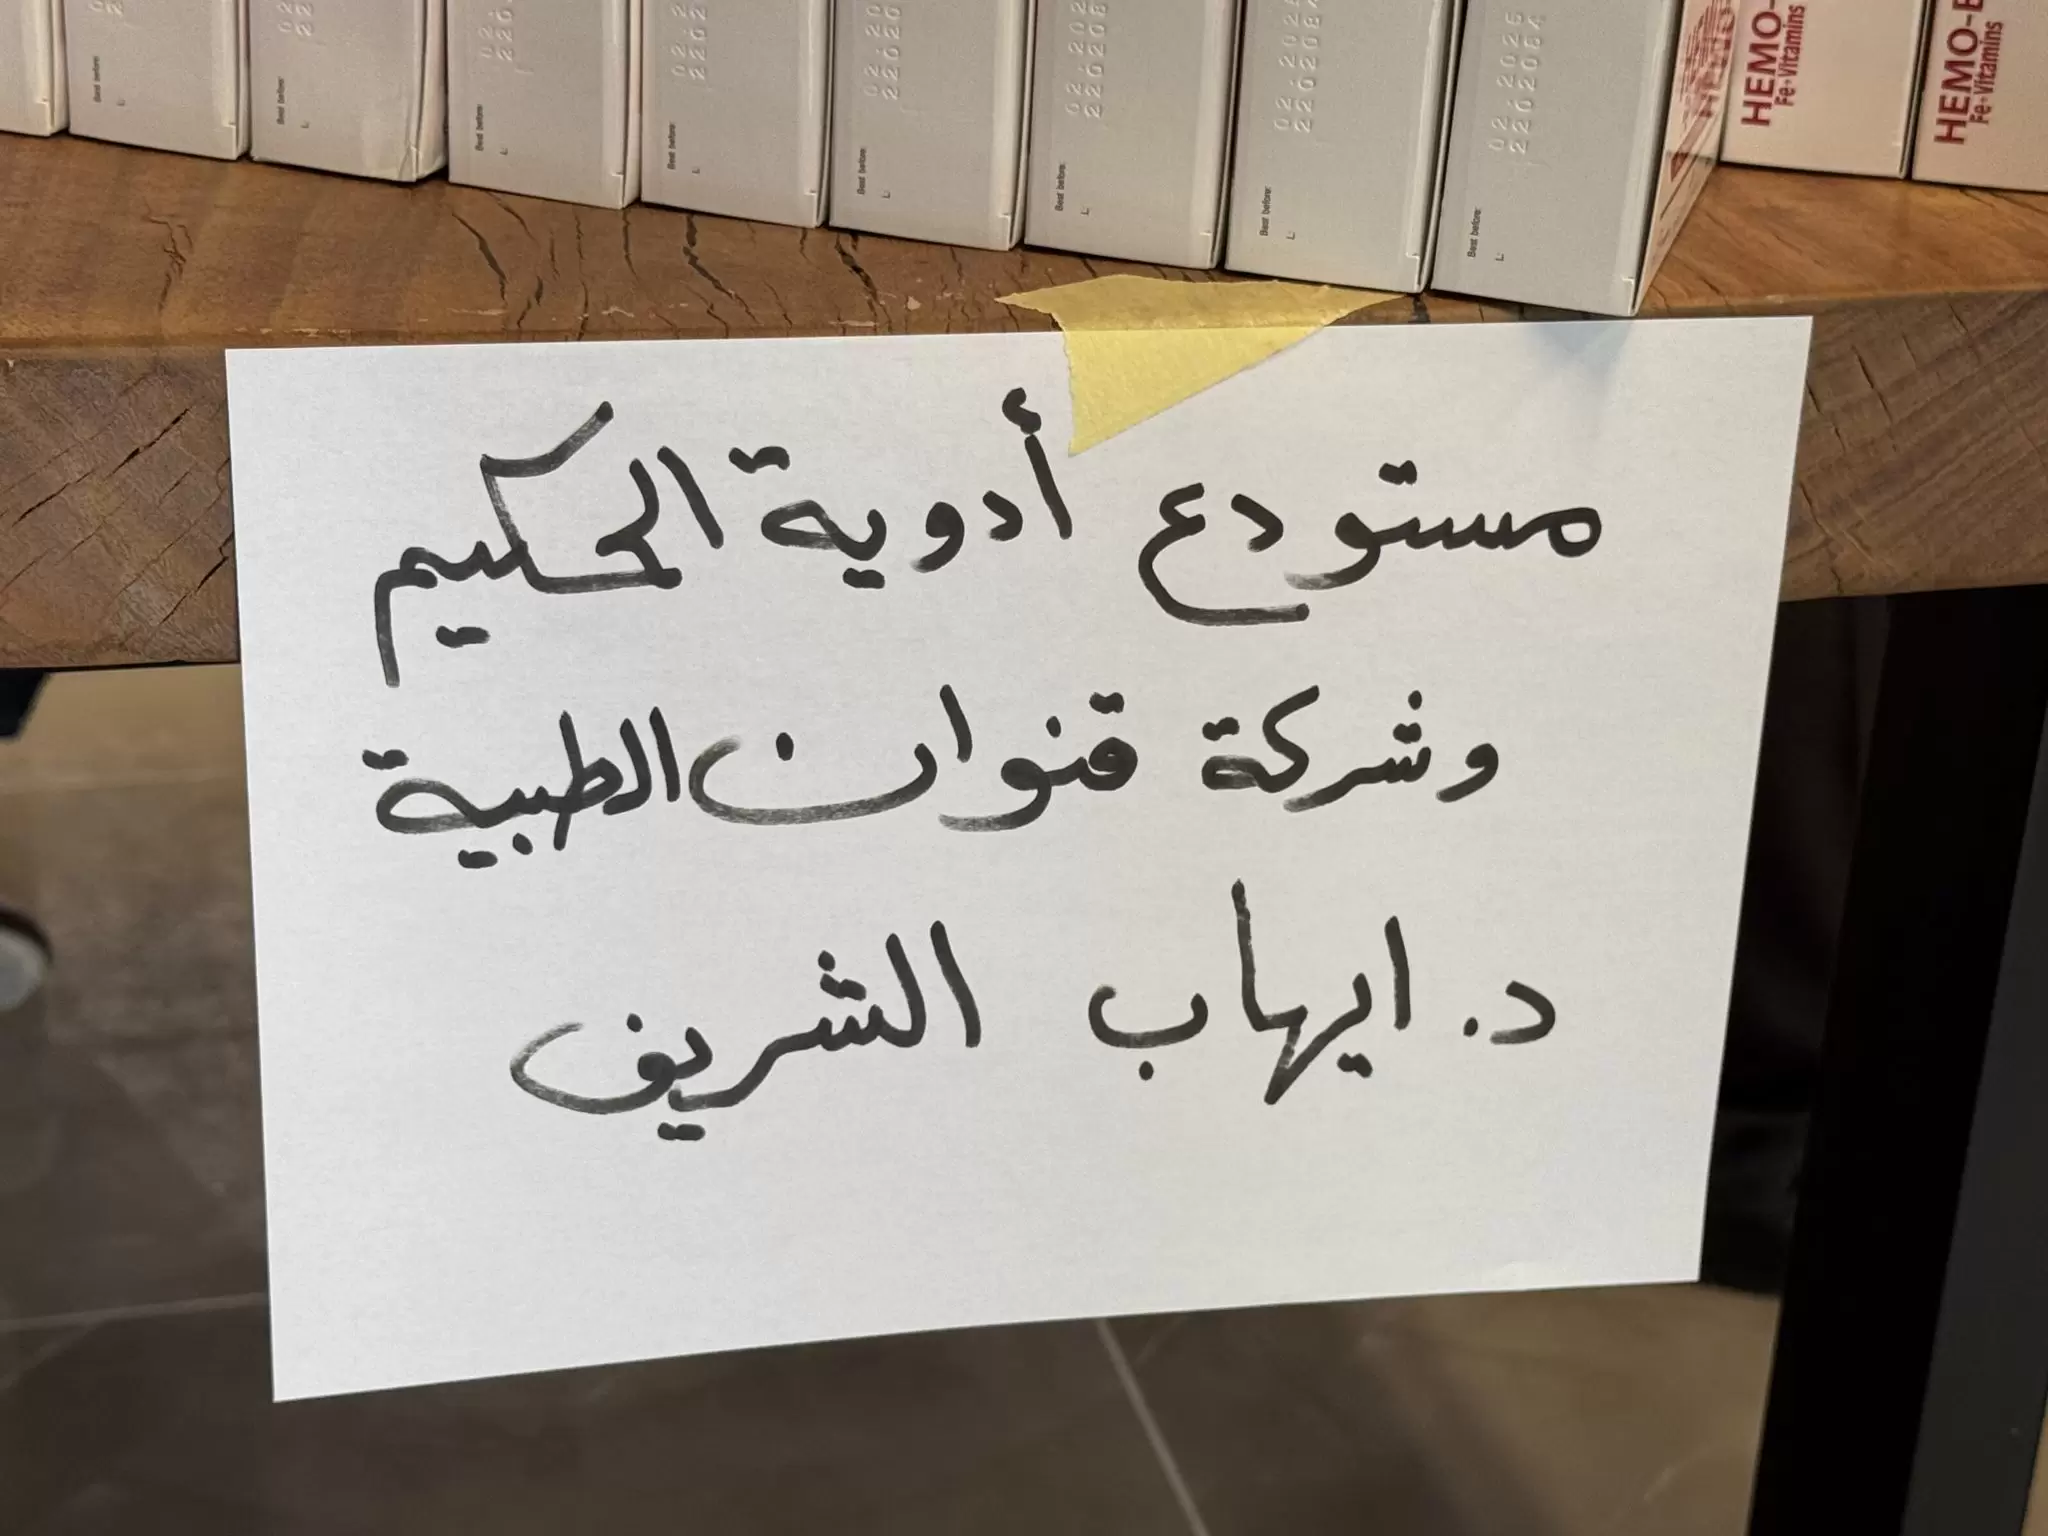 02.2025
220208
Best before:
L:
HEMO-
Fe-Vitamins
HEMO-
Fe-Vitamins
مستودع أدوية الحكيم
وشركة قنوان الطبية
د. ايهاب الشريف